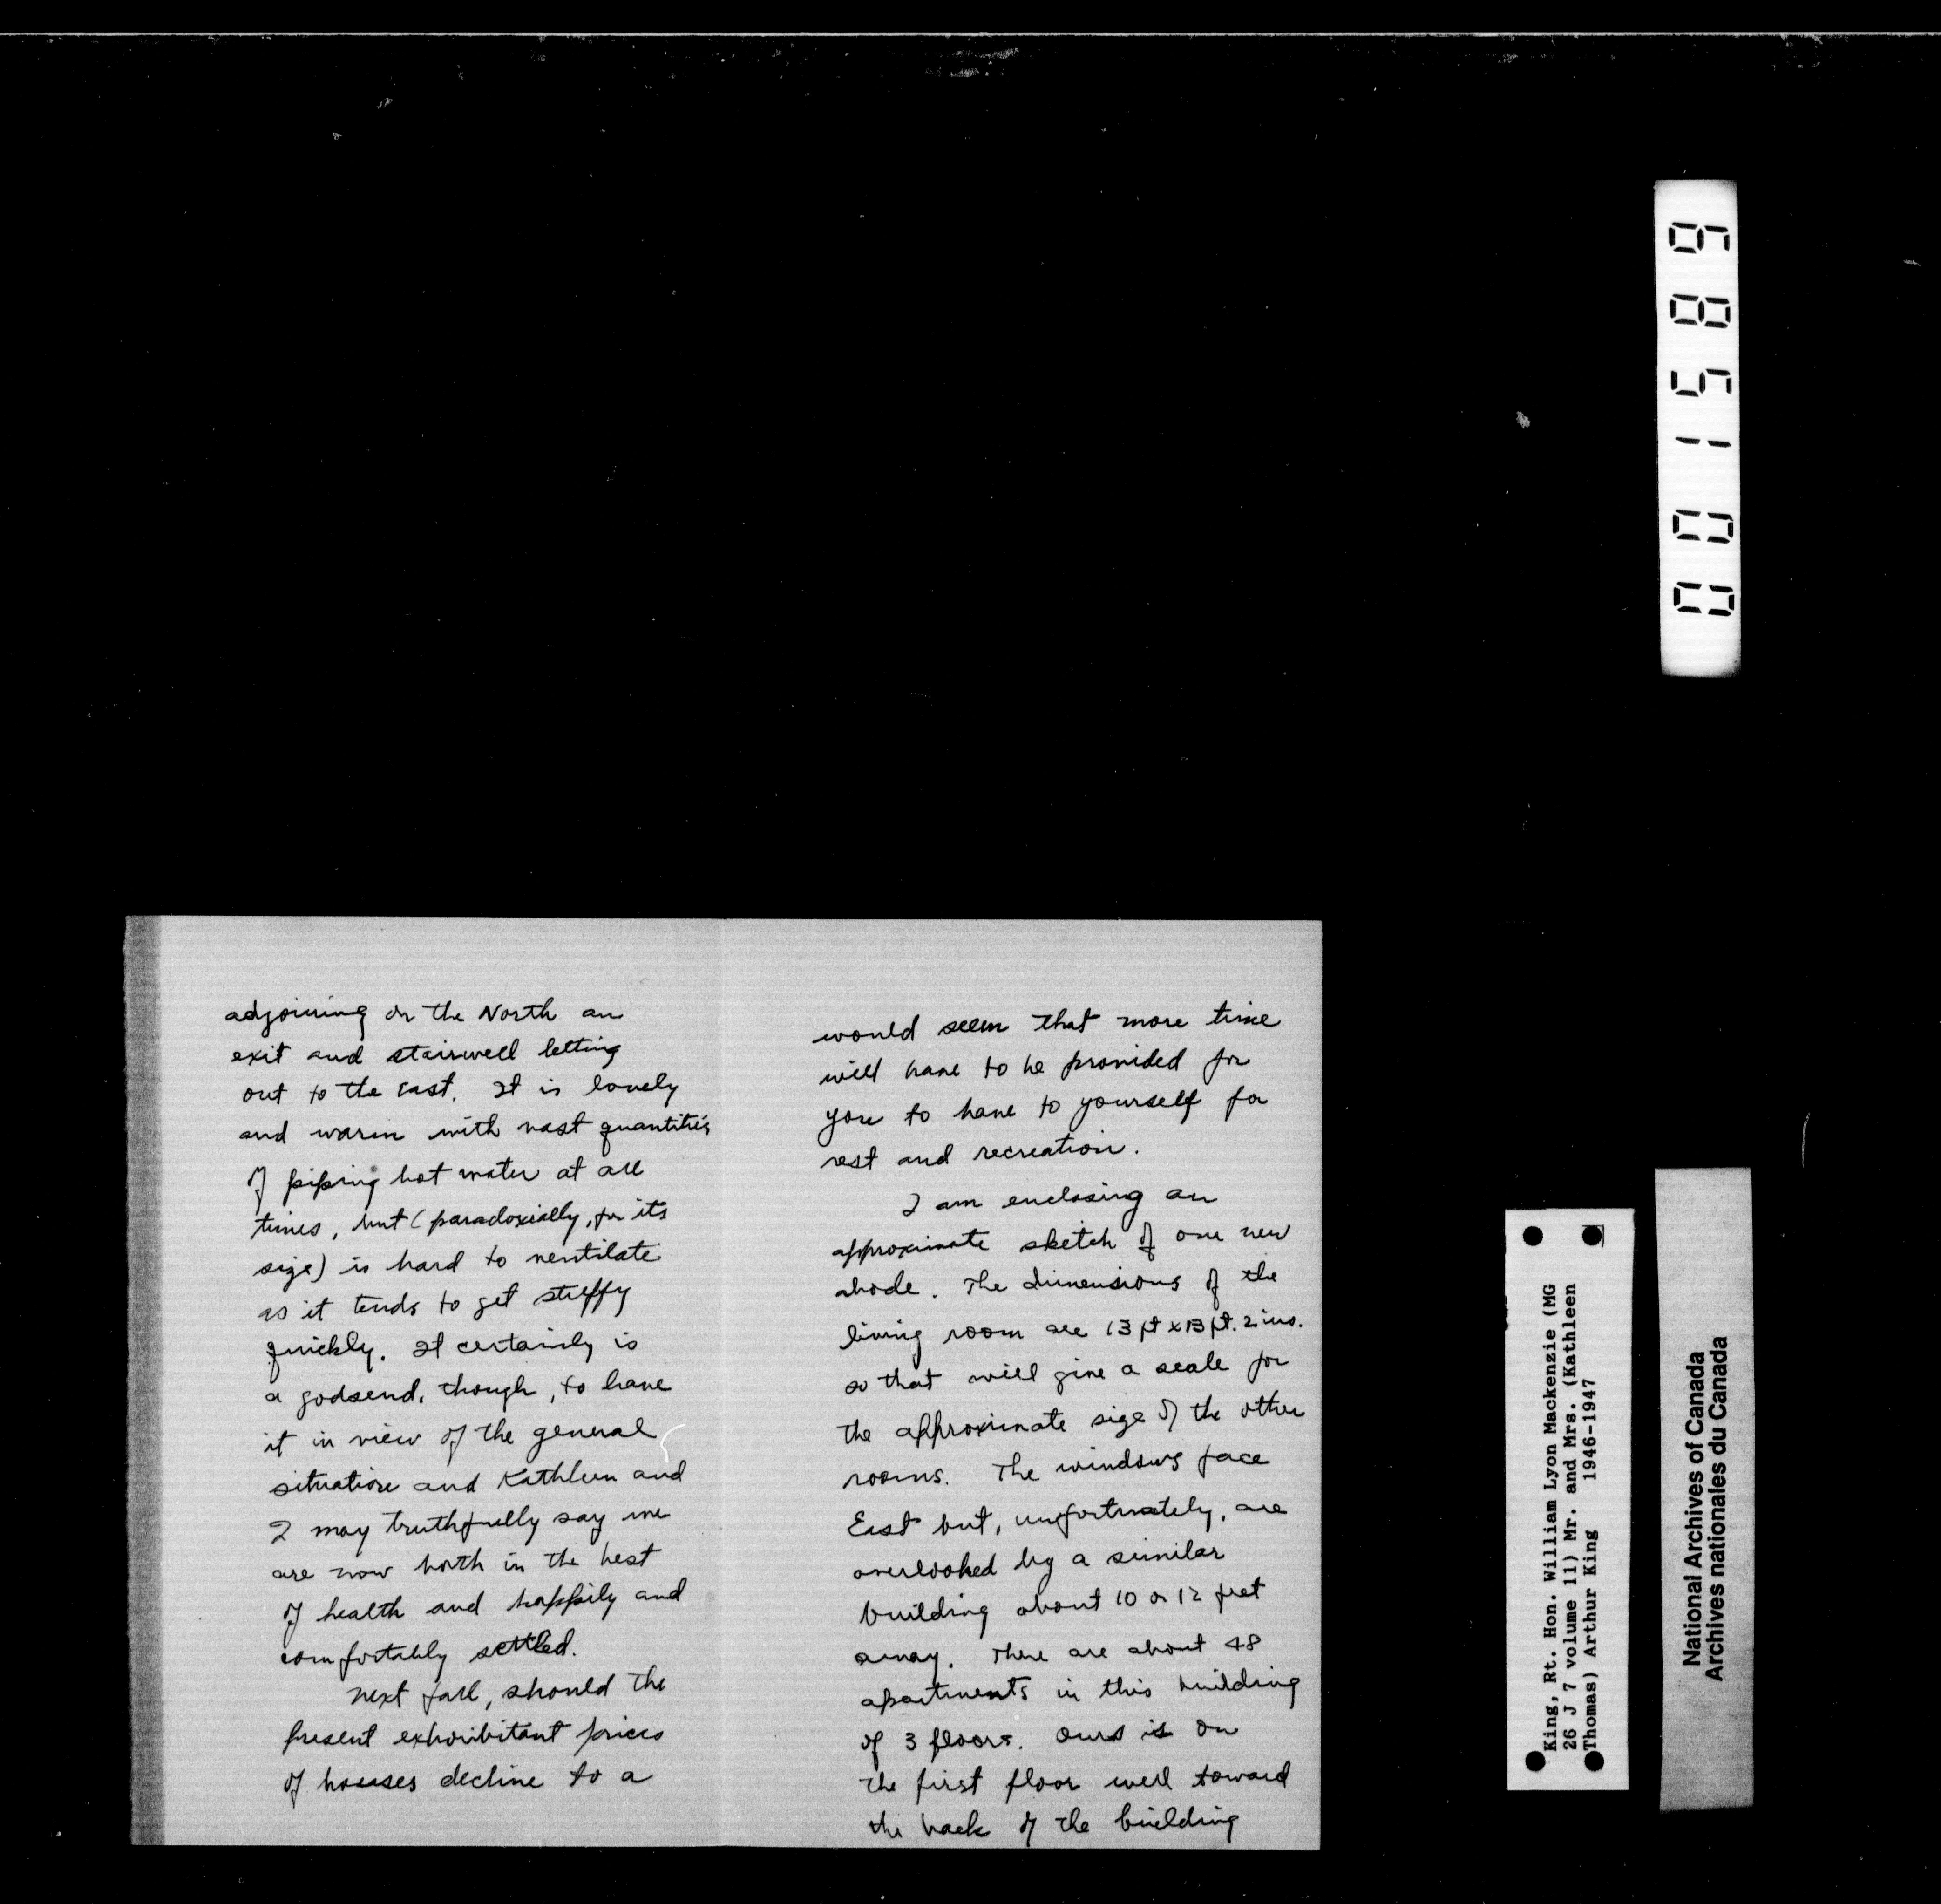 adjoining on the North an
exit and stairwell letting
out to the East. It is lovely
and warm with vast quantities
of piping hot water at all
times, but (paradoxially, for its
size) is hard to ventilate
as it tends to get stuffy
quickly. It certainly is
a godsend, though, to have
it in view of the general
situation and Kathleen and
I may truthfully say we
are now both in the best
of health and happily and
comfortably settled.
Next fall, should the
present exhoribitant prices
of houses decline to a
would seem that more time
will have to be provided for
you to have to yourself for
rest and recreation.
I am enclosing an
approximate sketch of our new
abode. The dimensions of the
living room are 13 ft x 13 ft. 2 ins.
so that will give a scale for
the approximate size of the other
rooms. The windows face
East but, unfortunately, are
overlooked by a similar
building about 10 or 12 feet
away. There are about 48
apartments in this building
of 3 floors. Ours is on
the first floor well toward
the back of the building
001589
King, Rt. Hon. William Lyon Mackenzie (MG
26 J 7 volume 11) Mr. and Mrs. (Kathleen
Thomas) Arthur King 1946-1947
National Archives of Canada
Archives nationales du Canada